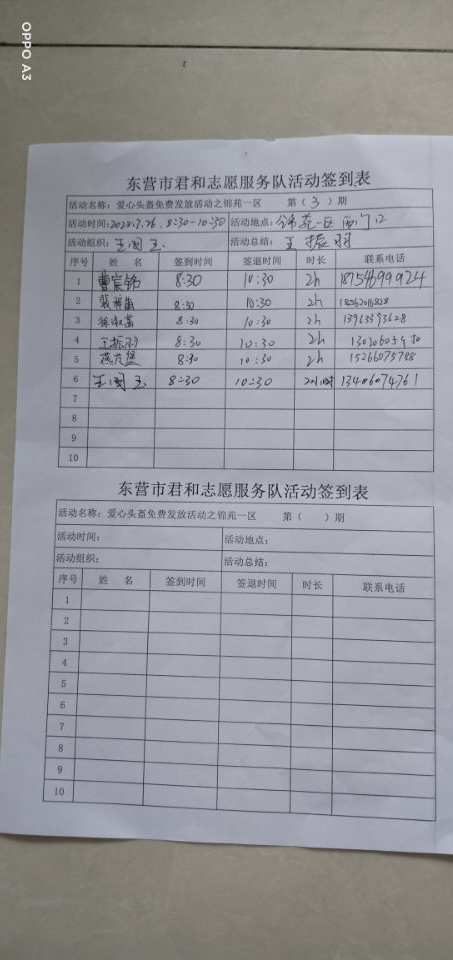 OPPO A3
东营市君和志愿服务队活动签到表
活动名称：爱心头盔免费发放活动之锦苑一区 第（3）期
活动时间：2022.7.26. 8:30-10:30 活动地点：锦苑一区西门口
活动组织：王国玉 活动总结：王振羽
序号 姓 名 签到时间 签退时间 时长 联系电话
1 曹宸铭 8:30 10:30 2h 18754699924
2 8:30 10:30 2h
3 8:30 10:30 2h 13963393628
4 王振羽 8:30 10:30 2h
5 8:30 10:30 2h 15266075788
6 王国玉 8:30 10:30 2小时 13406074761
7
8
9
10
东营市君和志愿服务队活动签到表
活动名称：爱心头盔免费发放活动之锦苑一区 第（ ）期
活动时间： 活动地点：
活动组织： 活动总结：
序号 姓 名 签到时间 签退时间 时长 联系电话
1
2
3
4
5
6
7
8
9
10